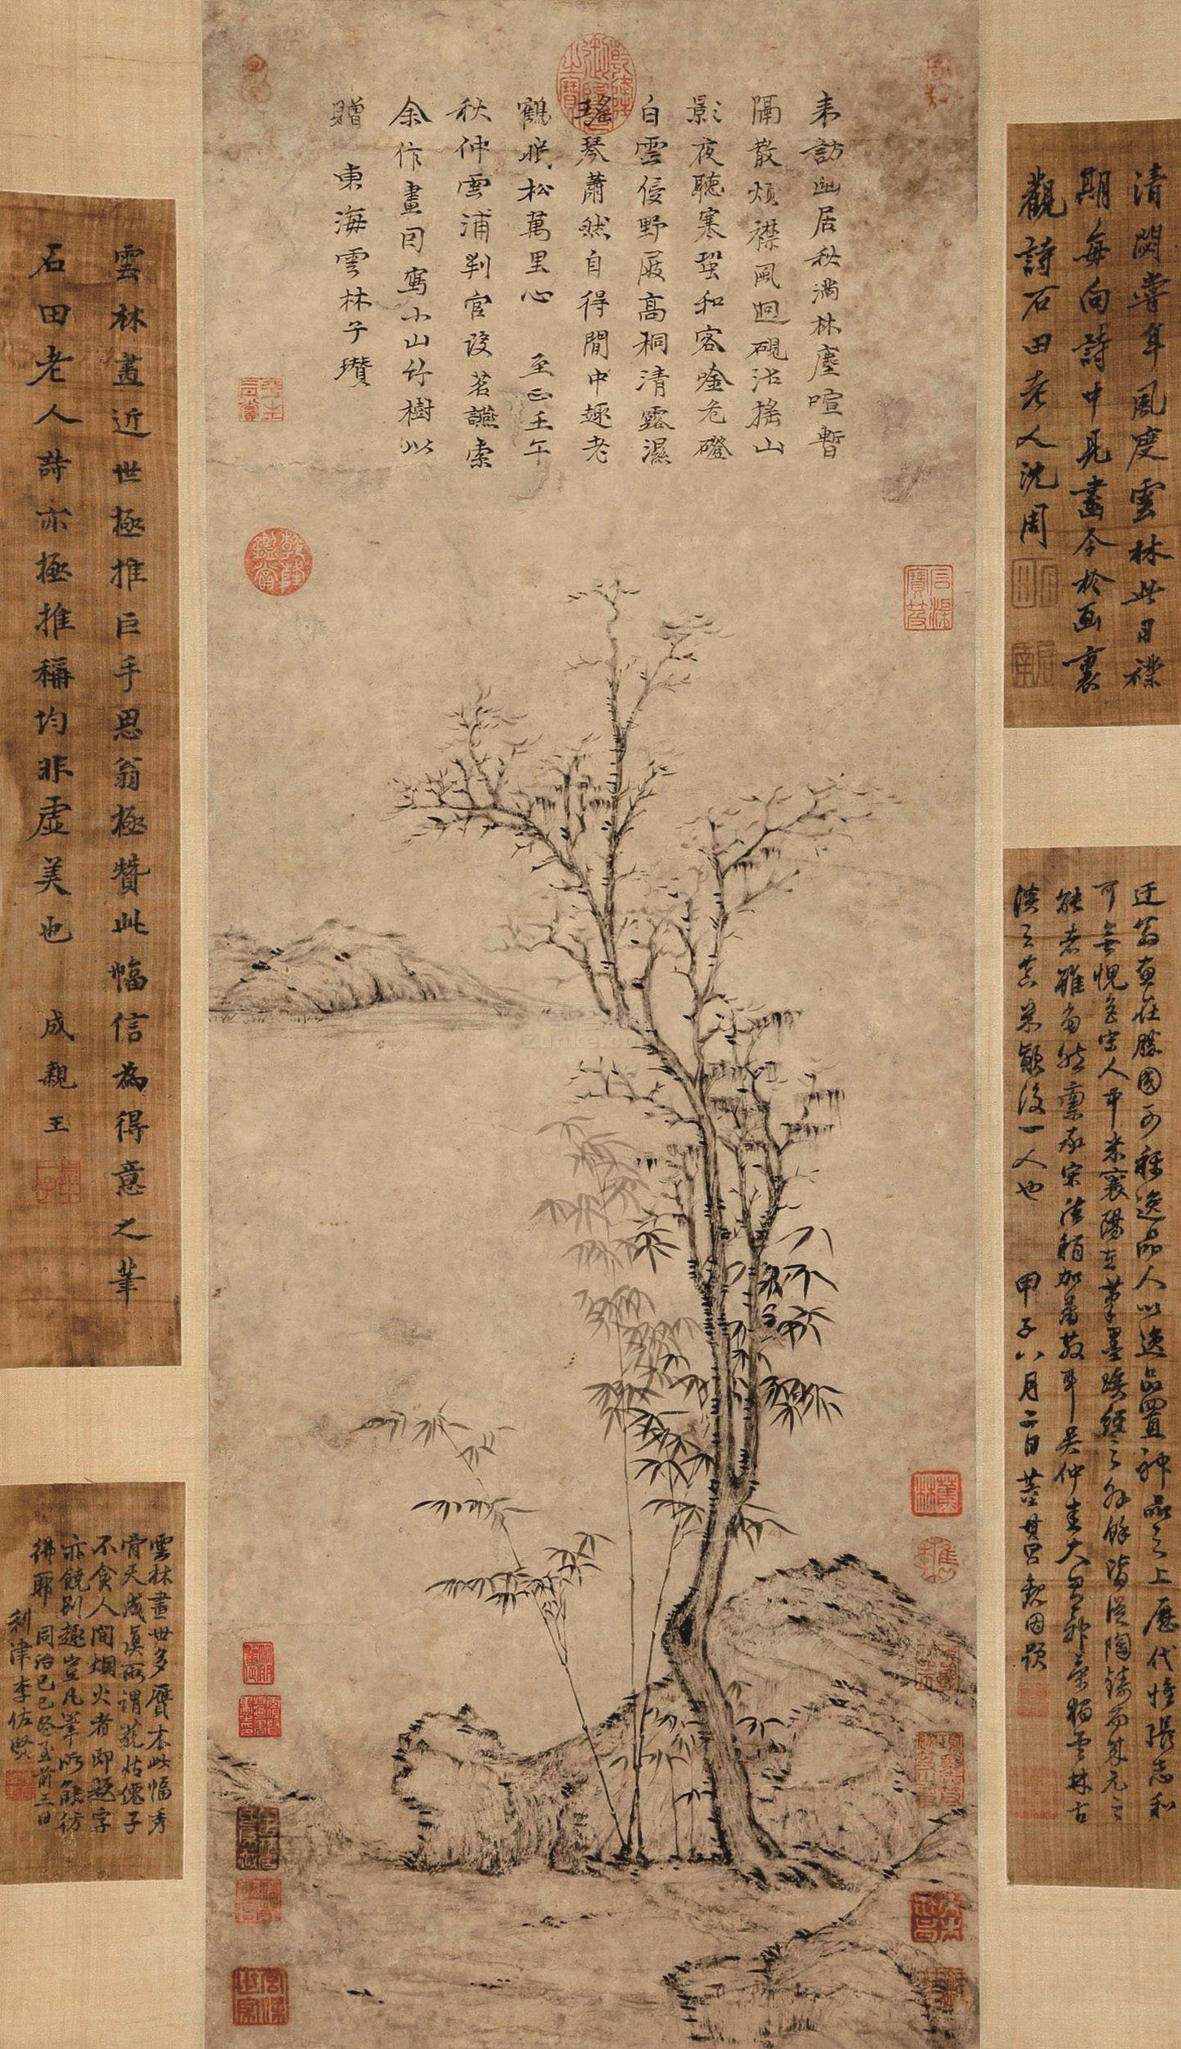 來訪幽居秋滿林塵喧暫
隔散煩襟風迴硯沼搖山
影夜聽寒蛩和客唫危磴
白雲侵野屐高桐清露濕
瑤琴蕭然自得閒中趣老
鶴眠松萬里心 至正壬午
秋仲雲浦判官設茗讌索
余作畫因寫小山竹樹以
贈 東海雲林子瓚
乾隆御覽之寶
乾隆鑑賞
蕉林
清閟當年風度雲林此日襟
期每向詩中見畫今於画裏
觀詩石田老人沈周
迂翁畫在勝國可稱逸品人以逸品置神品之上歷代惟張志和
可無愧色宋人中米襄陽在筆墨蹊徑之外餘皆從陶鑄而來元之
能者雖多然稟承宋法稍加蕭散耳吳仲圭大有神氣獨雲林古
淡天真米顛後一人也 甲子八月二日董其昌觀因題
雲林畫近世極推巨手思翁極贊此幅信為得意之筆
石田老人詩亦極推稱均非虛美也 成親王
雲林畫世多贋本此幅秀
骨天成真所謂藐姑僊子
不食人間烟火者即題字
亦饒別趣豈凡筆所能彷
彿耶 同治己巳冬至前三日
利津李佐賢